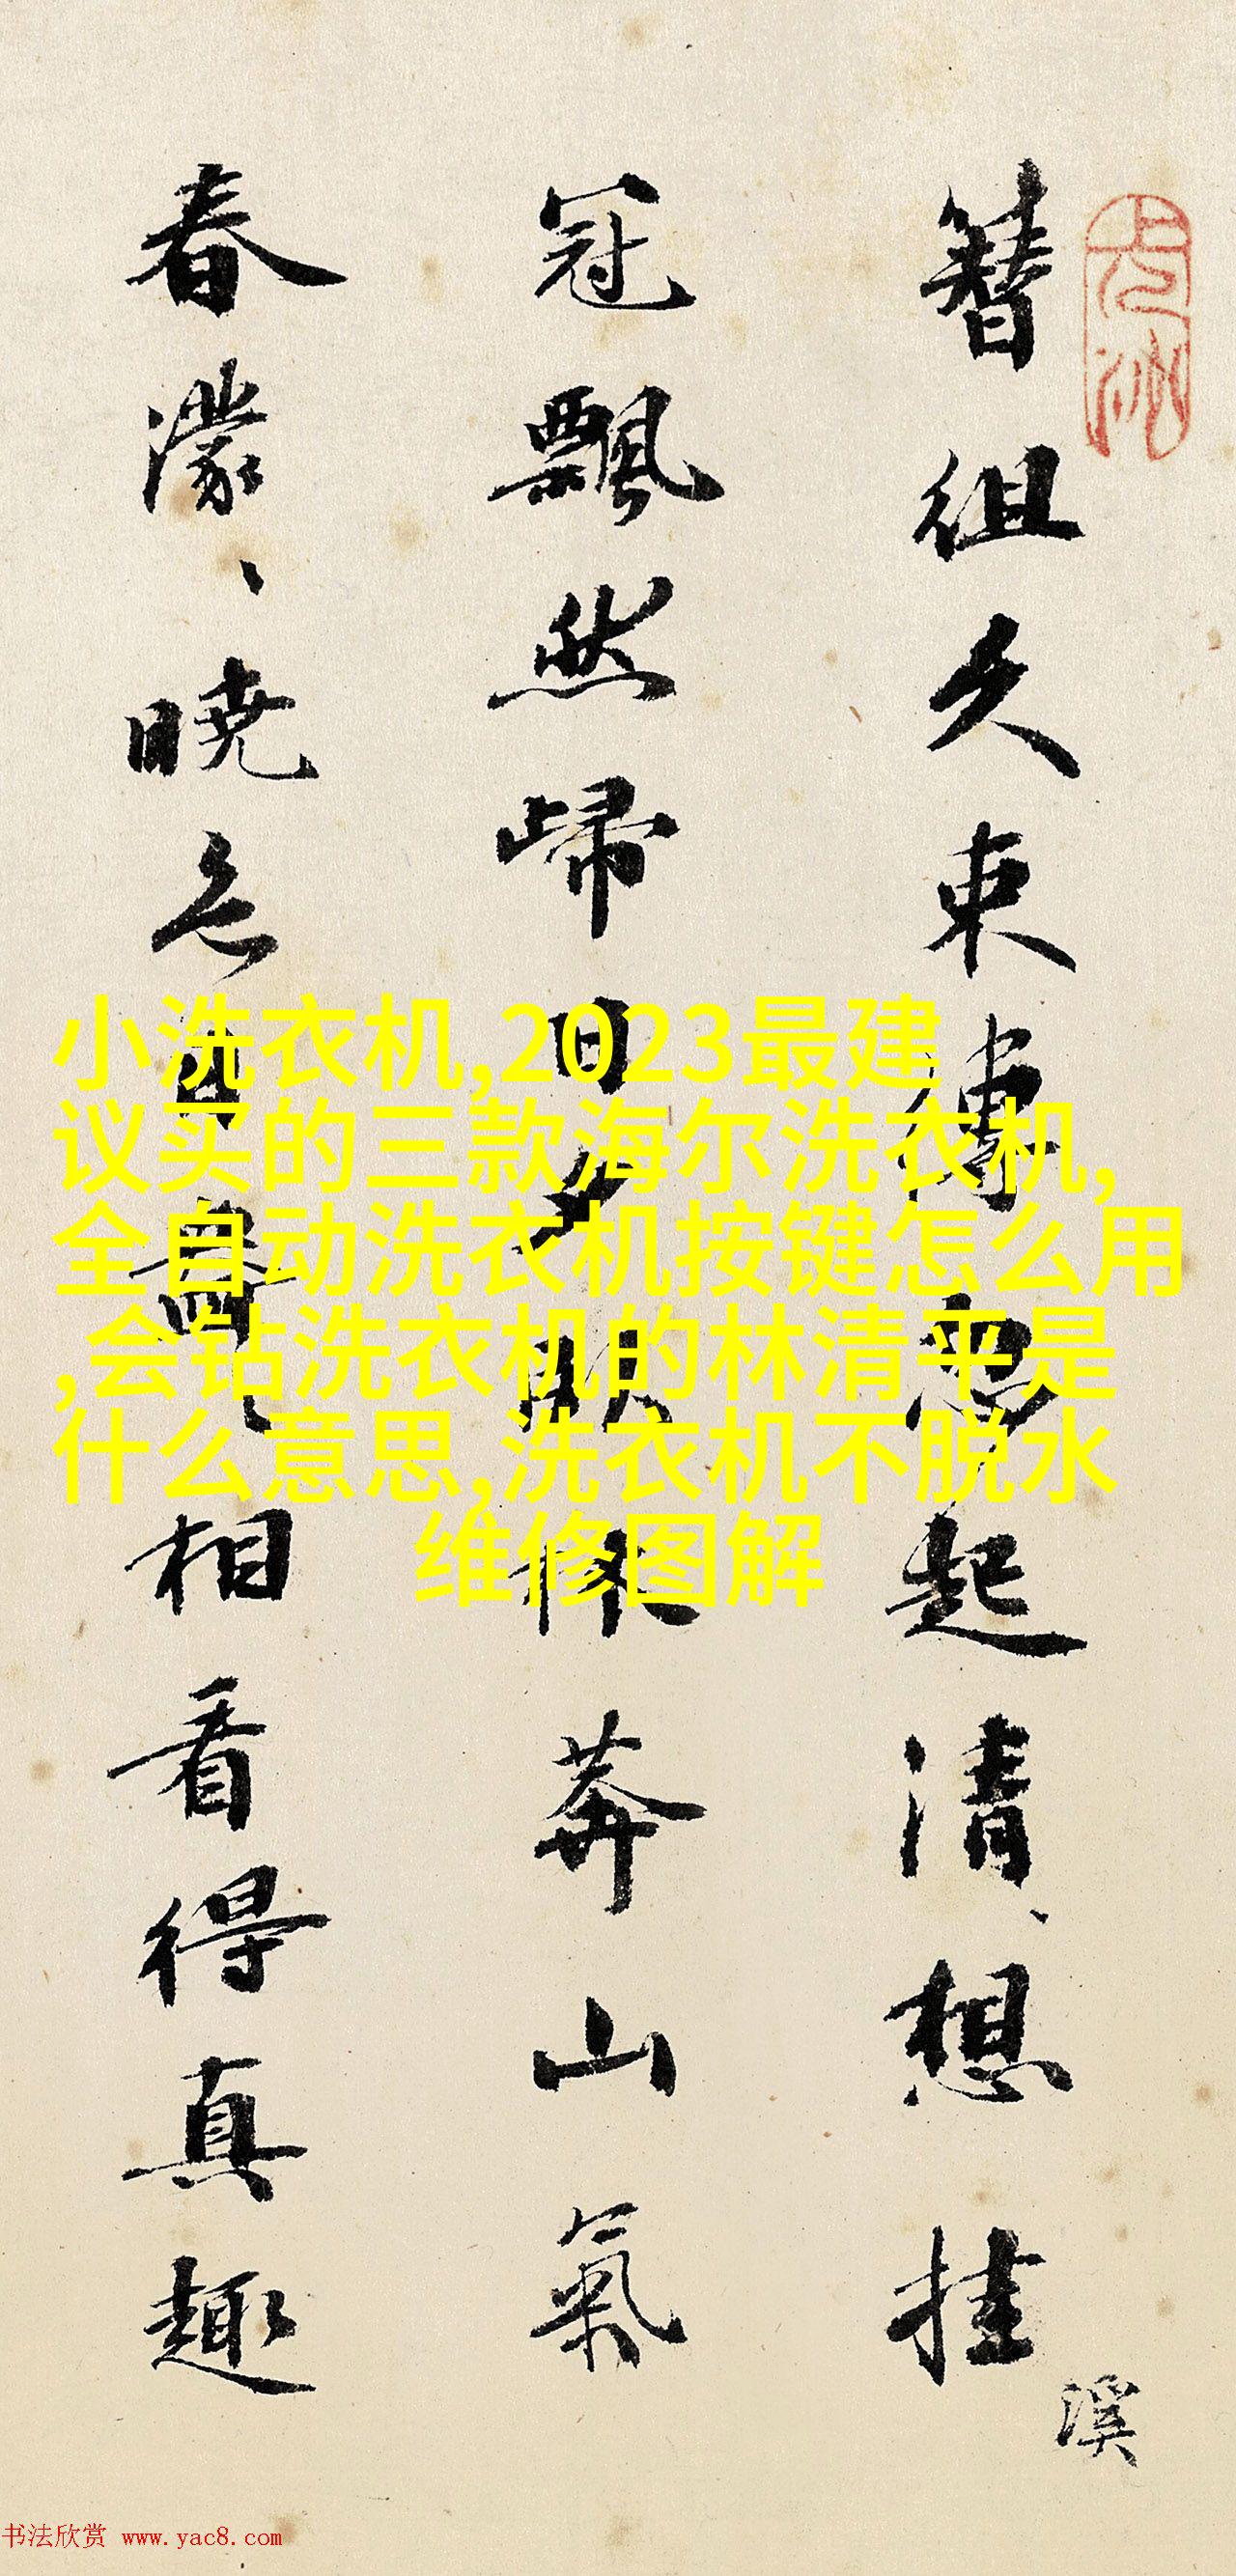 簪组久東專忽起清、想挂
冠飄然歸日夕眺休莽山氣
春濛、曉色直看、相看得真
趣
溪
小洗衣机,2023最建
议买的三款海尔洗衣机,
全自动洗衣机按键怎么用
,会钻洗衣机的林清平是
什么意思,洗衣机不脱水
维修图解
书法欣赏 www.yac8.com